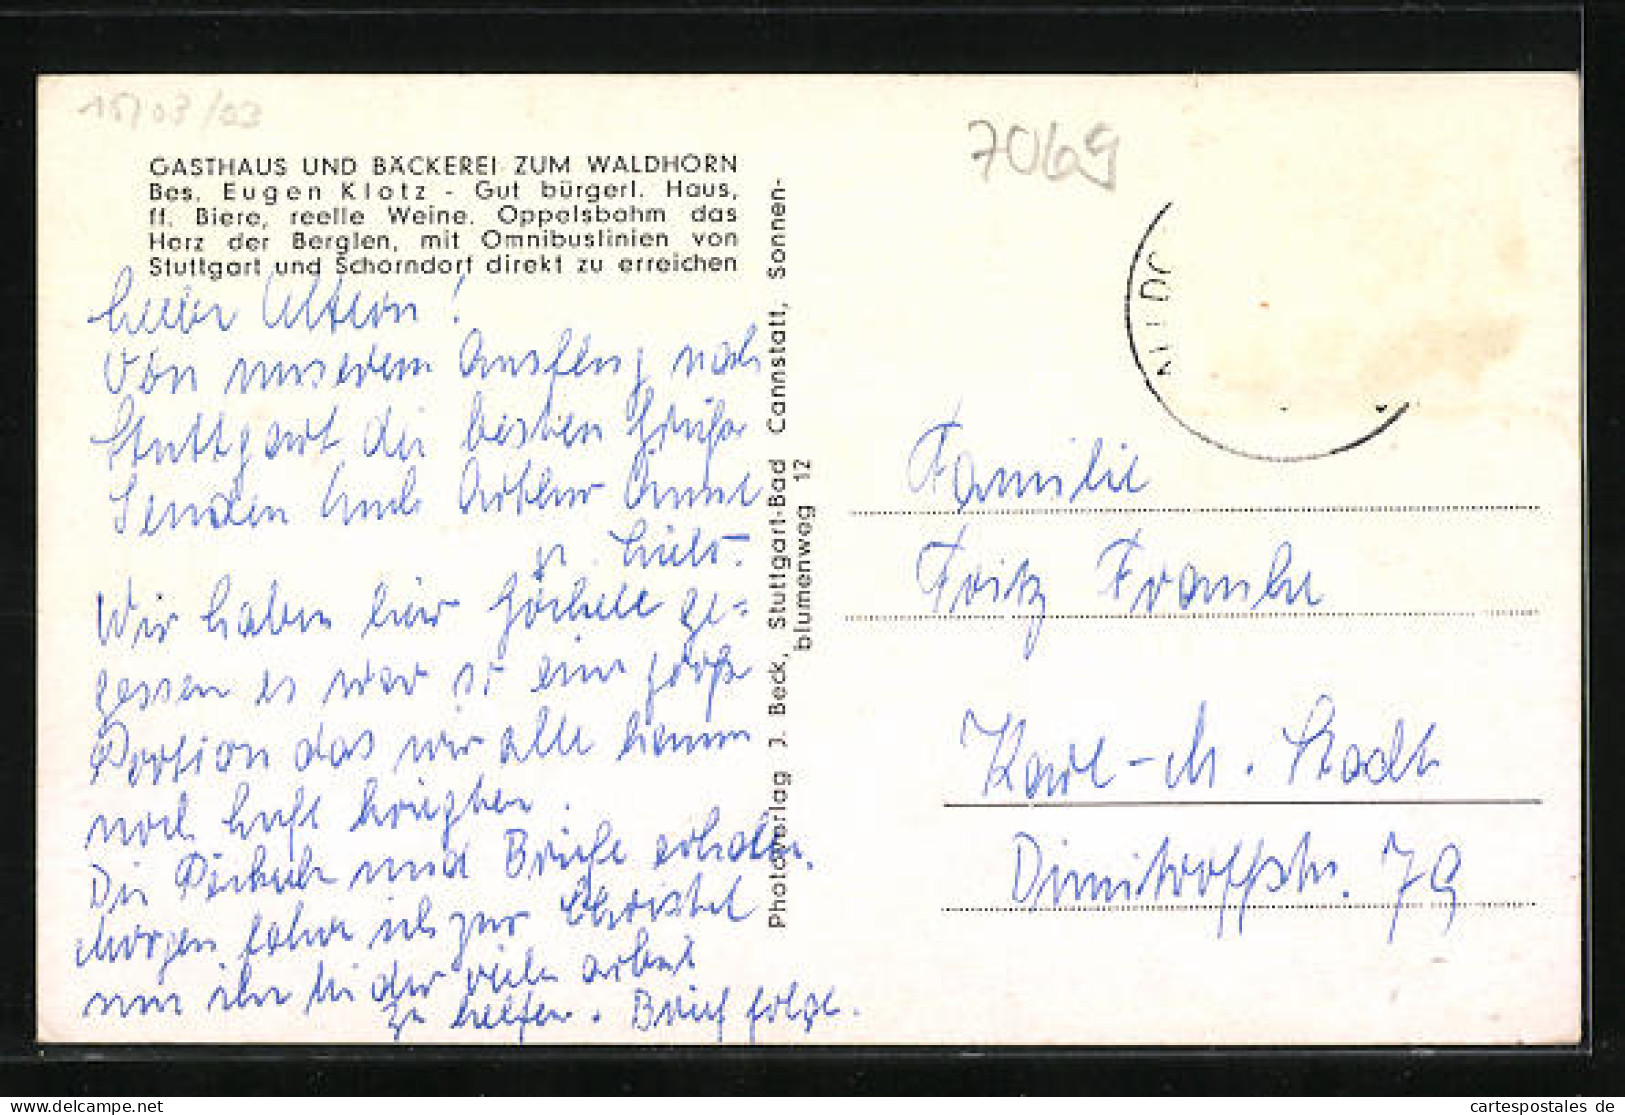 15703/03
GASTHAUS UND BÄCKEREI ZUM WALDHORN
Bes. Eugen Klotz - Gut bürgerl. Haus,
ff. Biere, reelle Weine. Oppelsbohm das
Herz der Berglen, mit Omnibuslinien von
Stuttgart und Schorndorf direkt zu erreichen
Liebe Eltern!
Von unserem Ausflug nach
Stuttgart die besten Grüße
Senden Euch Arthur Anne
u.
Wir haben hier Göckele ge=
gessen es war so eine große
Portion das wir alle kaum
noch Luft kriegten.
Die Päckch und Briefe erhalten.
Morgen fahre ich zur Christel
um ihr bei der viele arbeit
zu helfen. Brief folgt.
Photoverlag J. Beck, Stuttgart-Bad Cannstatt, Sonnen-
blumenweg 12
7069
Familie
Fritz Franke
Karl-M. Stadt
Dimitroffstr. 79
cartespostales de